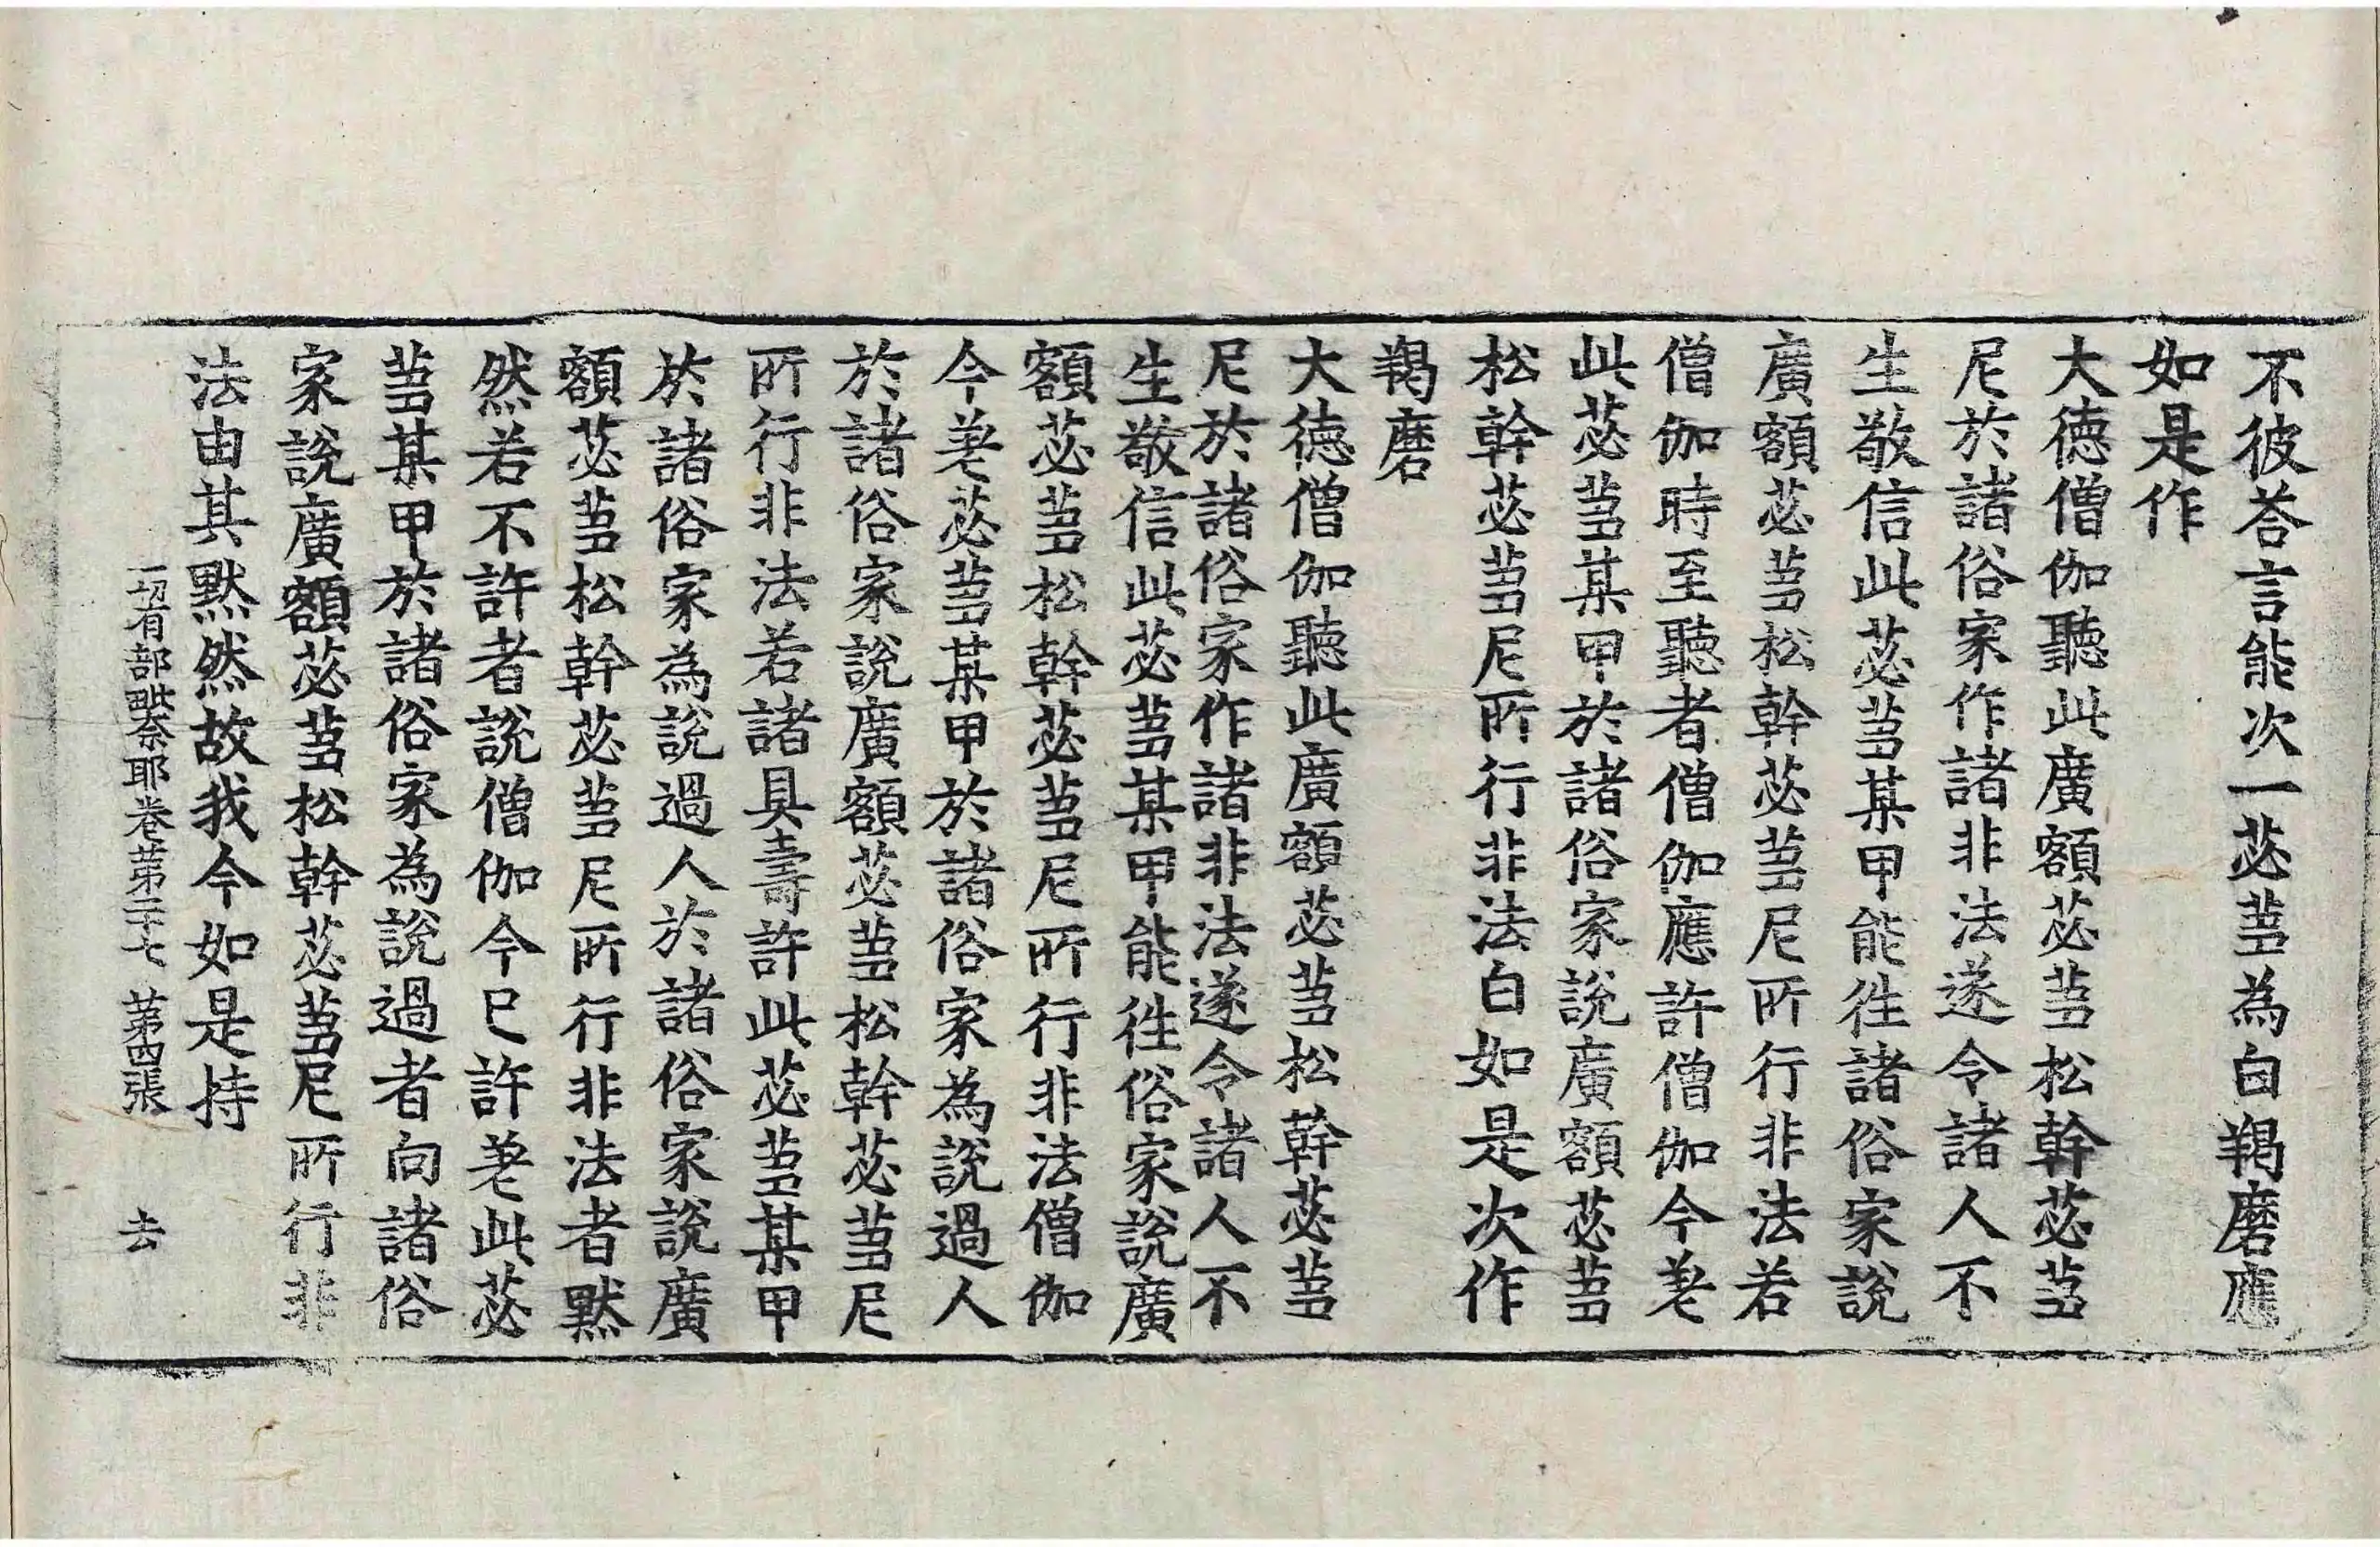 不彼荅言能次一苾蒭為白羯磨應
如是作
大德僧伽聽此廣額苾蒭松幹苾蒭
尼於諸俗家作諸非法遂令諸人不
生敬信此苾蒭某甲能往諸俗家說
廣額苾蒭松幹苾蒭尼所行非法若
僧伽時至聽者僧伽應許僧伽今差
此苾蒭某甲於諸俗家說廣額苾蒭
松幹苾蒭尼所行非法白如是次作
羯磨
大德僧伽聽此廣額苾蒭松幹苾蒭
尼於諸俗家作諸非法遂令諸人不
生敬信此苾蒭某甲能往俗家說廣
額苾蒭松幹苾蒭尼所行非法僧伽
今差苾蒭某甲於諸俗家為說過人
於諸俗家說廣額苾蒭松幹苾蒭尼
所行非法若諸具壽許此苾蒭某甲
於諸俗家為說過人於諸俗家說廣
額苾蒭松幹苾蒭尼所行非法者默
然若不許者說僧伽今已許差此苾
蒭某甲於諸俗家為說過者向諸俗
家說廣額苾蒭松幹苾蒭尼所行非
法由其默然故我今如是持
一切有部毗奈耶卷第三十七 第四張 去